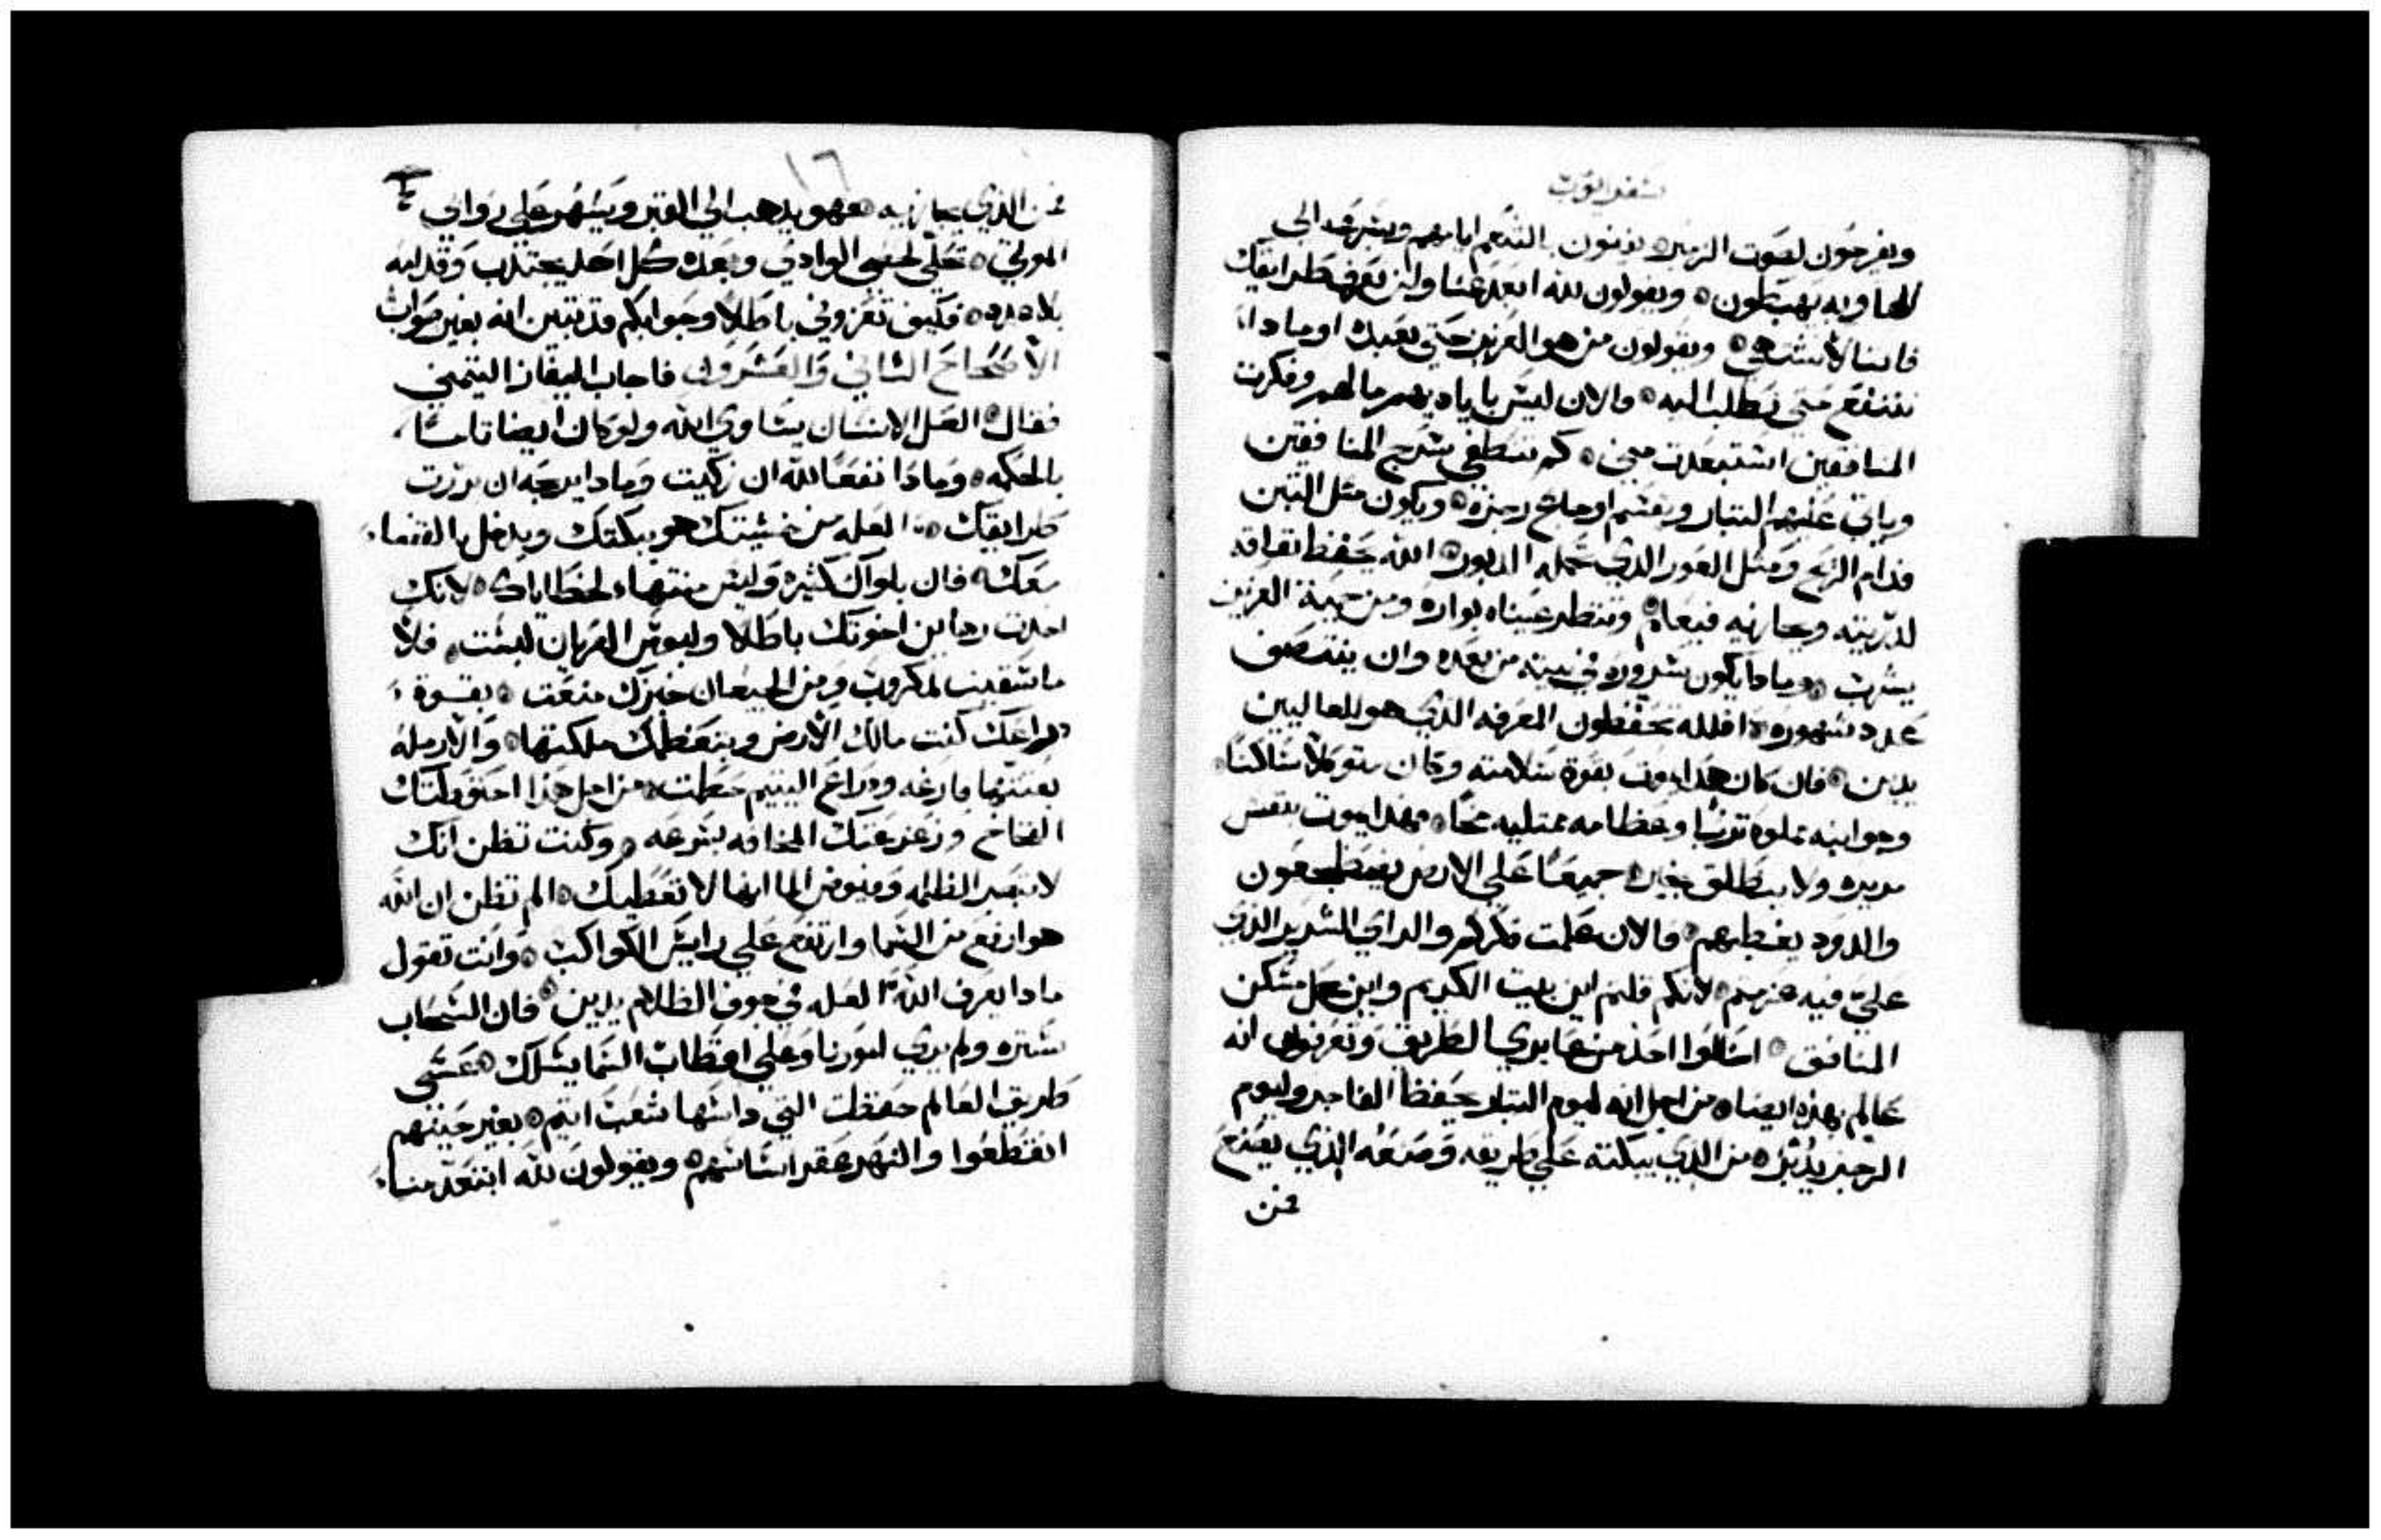 سفر ايوب
ويفرحون لصوت الزمر يفنون بالتنعم ايامهم وبسرعه الى
الهاويه يهبطون ويقولون لله ابعد عنا ولن نعرف طرايقك
فاننا لا نشتهي ويقولون من هو العزيز حتى نعبده او ماذا
ننتفع متى نطلب اليه والان ليس باياديهم مالهم وفكرت
المنافقين استبعدت مني كم تنطفي سرج المنافقين
وياتي عليهم التيار ويقسم اوجاع رجزه ويكون مثل التبن
قدام الريح ومثل الغور الذي تحمله الزبون الله يحفظ نفاقه
لذريته ويجازيه فيعلم وتنظر عيناه بواره ومن حمية العزيز
يشرب وماذا يكون سروره في بيته من بعده وان ينتصف
عدد شهوره افلله يحفظون المعرفه الذي هو للعاليين
يدين فان كان هذا يموت بقوة سلامته وكان متوكلا ساكنا
وجوانبه مملوه تربا وعظامه ممتليه مخا وهذا يموت بنفس
مريره ولا ينطلق بخيره جميعا على الارض يضطجعون
والدود يغطيهم والان علمت فكركم والراي الشديد الذي
علي فيه عزمتم لانكم قلتم اين بيت الكريم واين محل مسكن
المنافق اسالوا احد من عابري الطريق وتعرفون انه
عالم بهذه ايضا من اجل انه ليوم التبار يحفظ الفاجر وليوم
الرجز يدبر من الذي يبكته على طريقه وصنعه الذي يصنع
عن
١٦
عن الذي يجازيه فهو يذهب الى القبر ويسهر على روابي
الموتى تحلي لحصى الوادي وبعده كل احد يجتذب وقدامه
بلا عدد فكيف تعزوني باطلا وجوابكم قد تبين انه بغير صواب
الاصحاح الثاني والعشرون فاجاب اليفاز التيمني
فقال لعل الانسان يساوي الله ولو كان ايضا تاما
بالحكمه وماذا نفعا لله ان زكيت وماذا يربحه ان بررت
طرايقك العله من خشيتك هو يبكتك ويدخل بالقضاء
معك فان بلواك كثيره وليس منتهاء لخطاياك لانك
اخذت رهاين اخوتك باطلا ولبوس العريان لبست فلا
ما سقيت لمكروب ومن الجيعان خبزك منعت بقسوة
دراعك كنت مالك الارض وبتعظمك ملكتها والارمله
بعتتها فارغه ودراع اليتيم حطمت من اجل هذا احتوطتك
الفخاخ وزعزعتك المخافه بسرعه وكنت تظن انك
لا تبصر الظلمه وفيوض الما انها لا تغطيك الم تظن ان الله
هو ارفع من السما وارتفع على رايس الكواكب وانت تقول
ماذا يعرف الله العله في جوف الظلام يدين فان السحاب
ستره ولم يري امورنا وعلى اقطاب السما يسلك عسى
طريق العالم حفظت التي داستها شعب اثيم بغير حينهم
انقطعوا والنهر عقر اساسهم ويقولون لله ابتعد منا